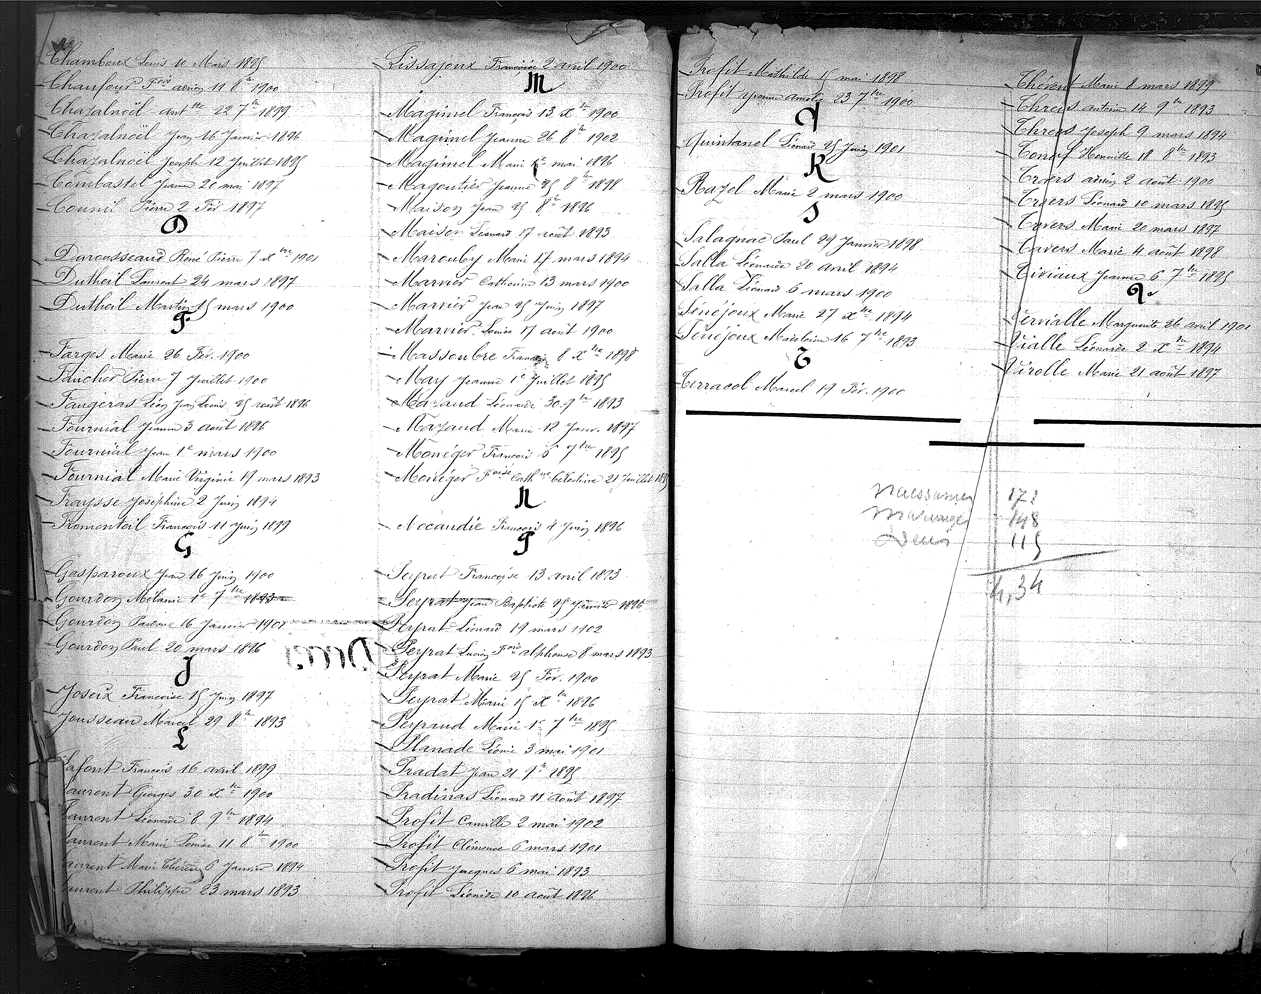 Chamboux Louis 10 Mars 1895
Chaufour Fois adrien 11 8bre 1900
Chazalnoël ant. 22 7bre 1899
Chazalnoël Jean 16 Janvier 1896
Chazalnoël Joseph 12 Juillet 1895
Combastel Jeanne 20 mai 1897
Counil Pierre 2 Fév 1897
D
Darousseaud René Pierre 7 Xbre 1901
Dutheil Laurent 24 mars 1897
Dutheil Martin 15 mars 1900
F
Farges Marie 26 Fév. 1900
Faucher Pierre 7 Juillet 1900
Faugeras Léon Jean Louis 25 août 1896
Fournial Jeanne 3 août 1896
Fournial Jean 1er mars 1900
Fournial Marie Virginie 19 mars 1893
Fraysse Joséphine 2 Juin 1894
Fromenteil François 11 Juin 1899
G
Gasparoux Jean 16 Juin 1900
Gourdon Mélanie 1er 7bre 1893
Gourdon 16 Janvier 1901
Gourdon Paul 20 mars 1896
J
Joseix Françoise 15 Juin 1897
Jousseau Marcel 29 8bre 1893
L
Lafont François 16 avril 1899
Laurent Georges 30 Xbre 1900
Laurent Léonarde 8 9bre 1894
Laurent Marie Louise 11 8bre 1900
Laurent Marie Thérèse 6 Janvier 1894
Laurent Philippe 23 mars 1893
Lissajoux Françoise 2 avril 1900
M
Magimel François 13 Xbre 1900
Magimel Jeanne 26 8bre 1902
Magimel Marie 1er mai 1896
Magoutier Jeanne 25 8bre 1898
Maison Jean 25 8bre 1896
Maison Léonard 17 août 1893
Marouby Marie 17 mars 1894
Marnier Catherine 13 mars 1900
Marnier Jean 25 Juin 1897
Marnier Louise 17 août 1900
Massoubre François 8 Xbre 1898
May Jeanne 1er Juillet 1895
Mazaud Léonarde 30 9bre 1893
Mazaud Marie 12 Janv. 1897
Monéger François 6 7bre 1895
Monéger Foise Cathne Célestine 21 Juillet
N
Nocaudie François 4 Juin 1896
P
Peyrat Françoise 13 avril 1893
Peyrat Jean Baptiste 25 Janvier 1896
Peyrat Léonard 19 mars 1902
Peyrat Lucien Fois alphonse 8 mars 1893
Peyrat Marie 25 Fév. 1900
Peyrat Marie 15 Xbre 1896
Peyraud Marie 1er 7bre 1895
Planade Léonie 3 mai 1901
Pradat Jean 21 9bre 1895
Pradinas Léonard 11 août 1897
Profit Camille 2 mai 1902
Profit Clémence 6 mars 1901
Profit Jacques 6 mai 1893
Profit Léonie 10 août 1896
Profit Mathilde 15 mai 1898
Profit Yvonne amélie 23 7bre 1900
Q
Quintanel Léonard 25 Juin 1901
R
Razel Marie 2 mars 1900
S
Salagnac Paul 29 Janvier 1898
Salla Léonarde 20 avril 1894
Salla Léonard 6 mars 1900
Sénéjoux Marie 27 Xbre 1894
Sénéjoux Madeleine 16 7bre 1893
T
Terracol Marcel 19 Fév. 1900
Marie 8 mars 1899
antoine 14 9bre 1893
Joseph 9 mars 1894
18 8bre 1893
adrien 2 août 1900
Léonard 10 mars 1895
Marie 20 mars 1897
Marie 4 août 1898
Tiviaux Jeanne 6 7bre 1895
V
Vervialle Marguerite 26 avril 1901
Vialle Léonarde 2 Xbre 1894
Virolle Marie 21 août 1897
Naissances 171
Mariages 148
Décès 115
4,34